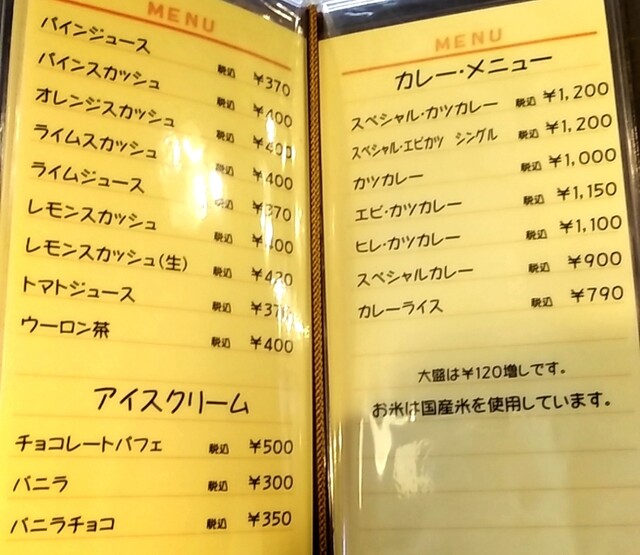 MENU
パインジュース 税込 ¥370
パインスカッシュ 税込 ¥400
オレンジスカッシュ 税込 ¥400
ライムスカッシュ 税込 ¥400
ライムジュース 税込 ¥370
レモンスカッシュ 税込 ¥400
レモンスカッシュ(生) 税込 ¥420
トマトジュース 税込 ¥370
ウーロン茶 税込 ¥400
アイスクリーム
チョコレートパフェ 税込 ¥500
バニラ 税込 ¥300
バニラチョコ 税込 ¥350
MENU
カレー・メニュー
スペシャル・カツカレー 税込 ¥1,200
スペシャル・エビカツ シングル 税込 ¥1,200
カツカレー 税込 ¥1,000
エビ・カツカレー 税込 ¥1,150
ヒレ・カツカレー 税込 ¥1,100
スペシャルカレー 税込 ¥900
カレーライス 税込 ¥790
大盛は¥120増しです。
お米は国産米を使用しています。